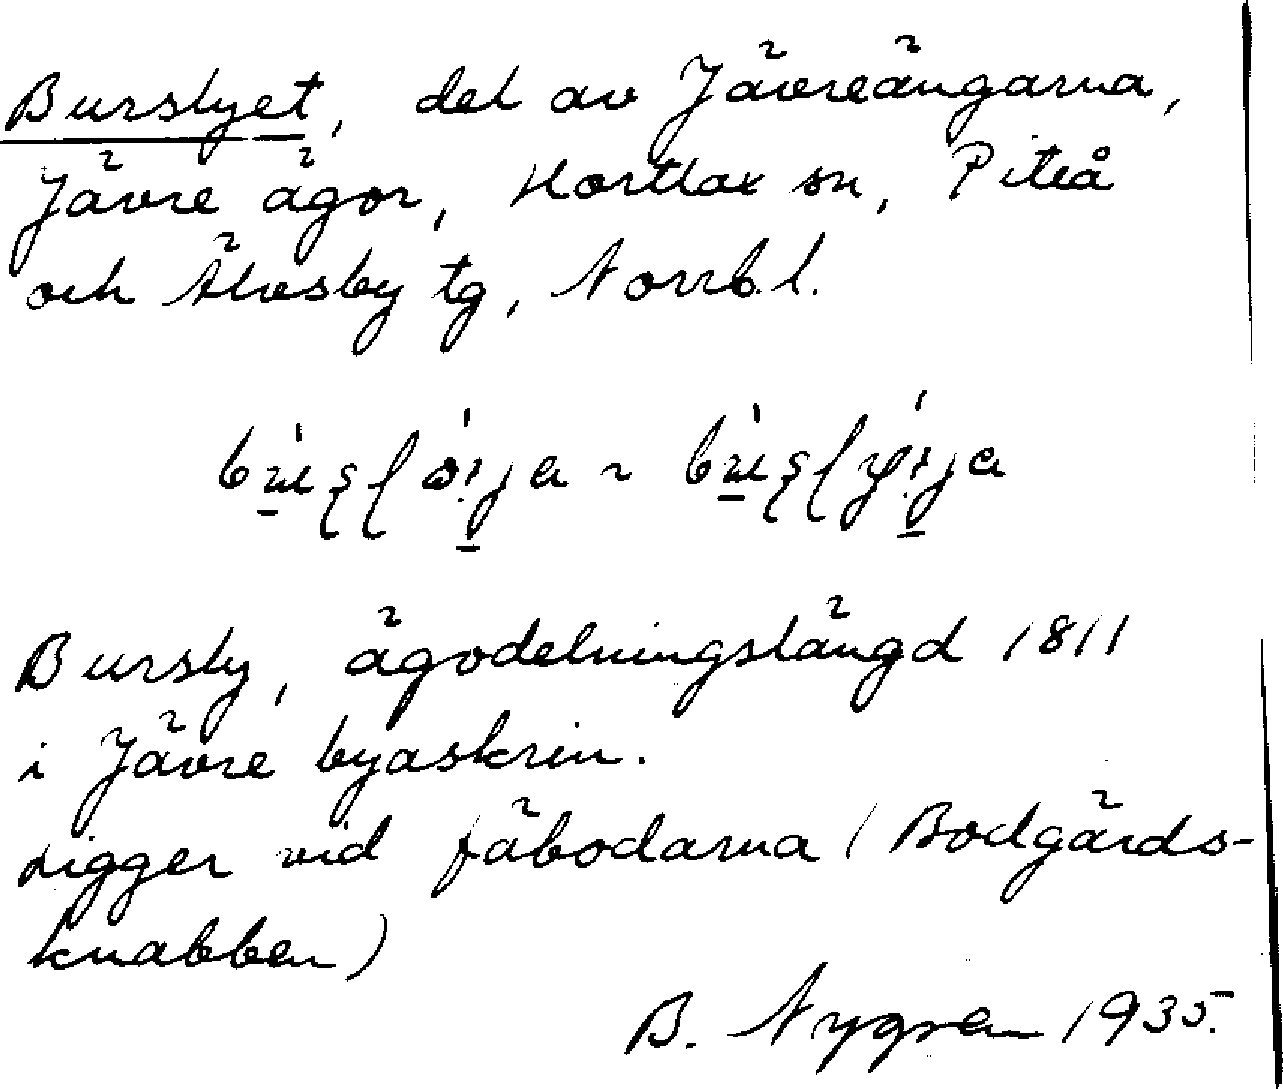 Burslyet, del av Jävreängarna,
Jävre ägor, Hortlax sn, Piteå
och Älvsby tg, Norrb.l.
Bursly, ägodelningslängd 1811
i Jävre byaskrin.
Ligger vid fäbodarna (Bodgärds-
knabben)
B. Nygren 1935.